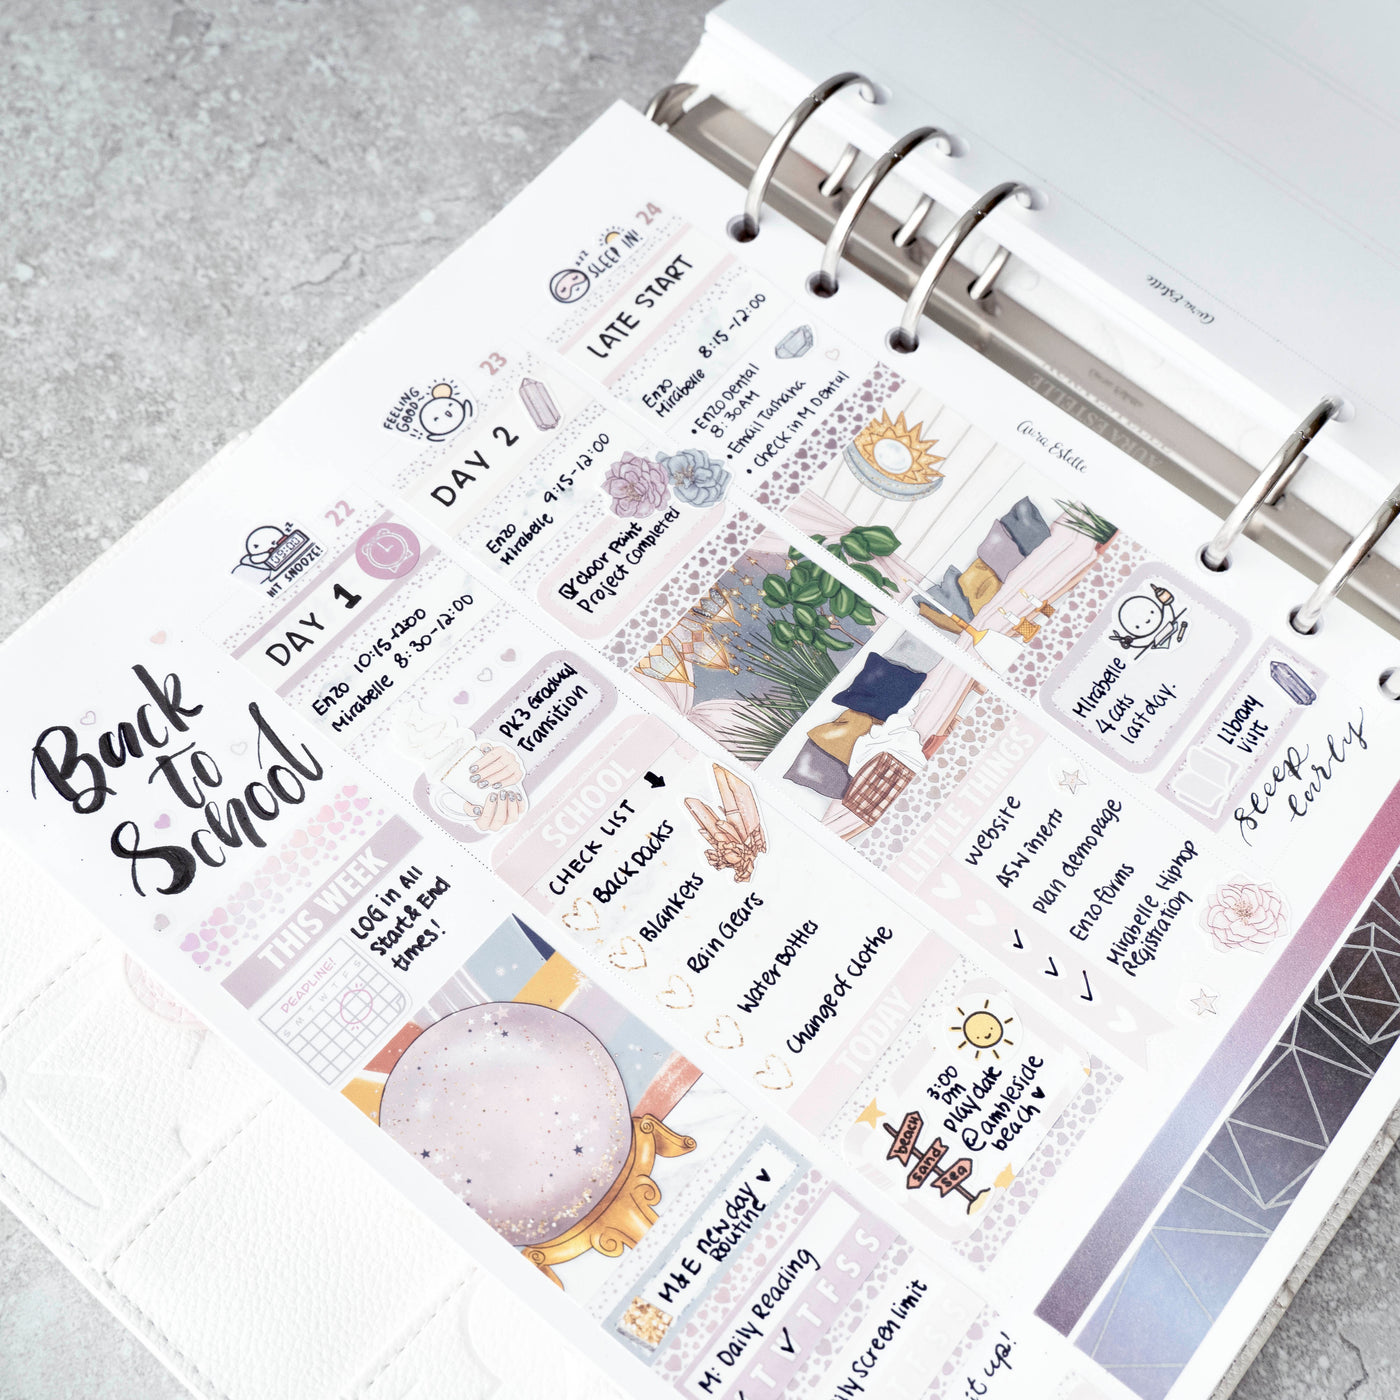 Back
to
School
THIS WEEK
LOG in All
Start & End
times!
DEADLINE!
M T W T F S
HIT SNOOZE!
22
DAY 1
Enzo 10:15-12:00
Mirabelle 8:30-12:00
PK3 Gradual
Transition
SCHOOL
CHECK LIST
Backpacks
Blankets
Rain Gears
Water Bottles
Change of Clothe
M & E new day
Routine
M: Daily Reading
T F S S
FEELING
GOOD
23
DAY 2
Enzo
Mirabelle 9:15-12:00
door Paint
Project Completed
SLEEP IN!
24
LATE START
Enzo
Mirabelle 8:15-12:00
• Enzo Dental
8:30AM
• Email Tashana
• check in M Dental
Aura Estelle
LITTLE THINGS
website
A5W inserts
plan demo page
Enzo forms
Mirabelle Hiphop
Registration
TODAY
3:00
pm
playdate
@ambleside
beach
beach
sand
sea
Mirabelle
4 cats
last day.
Library
Visit
sleep
early
screen limit
it up!
Aura Estelle
AURA ESTELLE